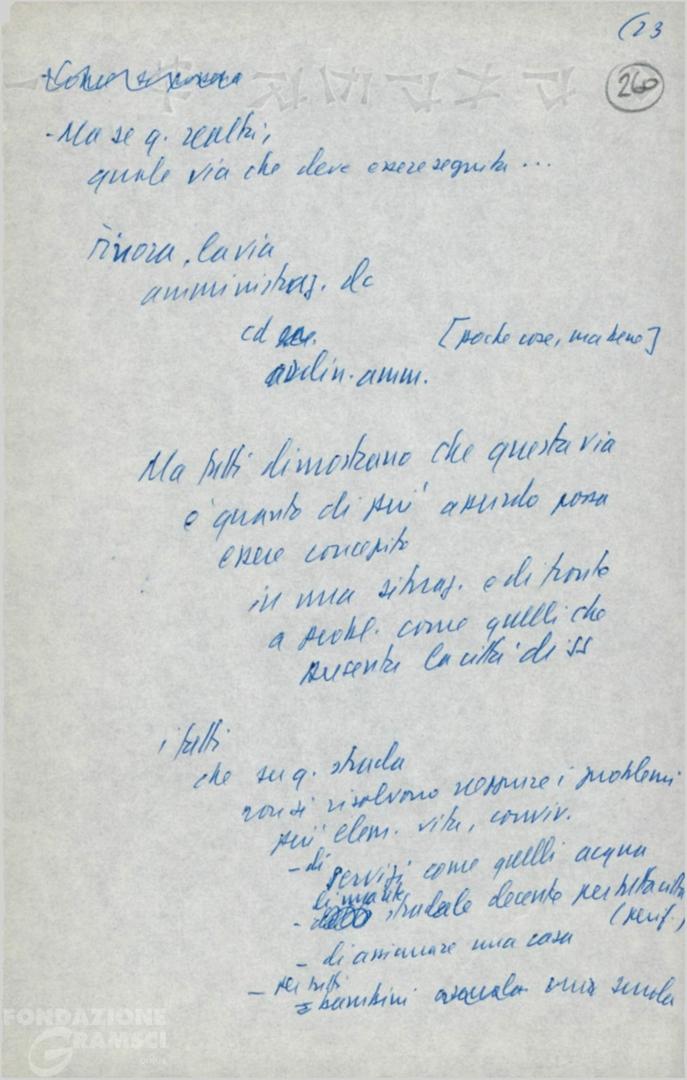 (23
260
- Ma se q. realtà,
quale via che deve essere seguita ...
Finora, la via
amministraz. dc
cd
[poche cose, ma bene]
ordin. amm.
Ma fatti dimostrano che questa via
è quanto di più assurdo possa
essere concepito
in una situaz. e di fronte
a probl. come quelli che
presenta la città di SS
i fatti
che su q. strada
non si risolvono neppure i problemi
più elem. vita, conviv.
- di servizi come quelli acqua
- stradale decente per tutta città
(perif.)
- di assicurare una casa
- per tutti
bambini una scuola
FONDAZIONE
GRAMSCI